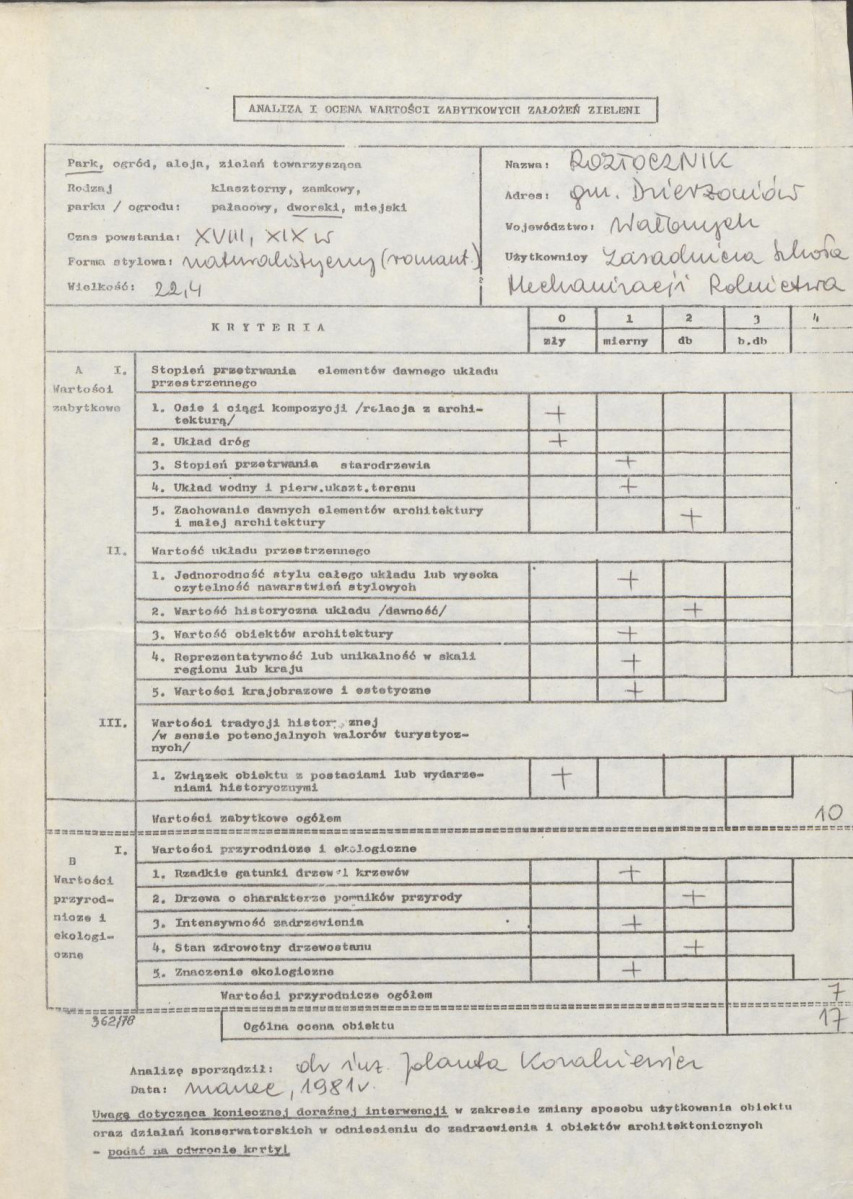 ANALIZA I OCENA WARTOŚCI ZABYTKOWYCH ZAŁOŻEŃ ZIELENI
Park, ogród, aleja, zieleń towarzysząca
Rodzaj klasztorny, zamkowy,
parku / ogrodu: pałacowy, dworski, miejski
Czas powstania: XVIII, XIX w
Forma stylowa: naturalistyczny (romant.)
Wielkość: 22,4
Nazwa: ROZTOCZNIK
Adres: gm. Dzierżoniów
Województwo: Wałbrzych
Użytkownicy Zasadnicza Szkoła
Mechanizacji Rolnictwa
KRYTERIA
0 1 2 3 4
zły mierny db b.db
A I. Stopień przetrwania elementów dawnego układu
przestrzennego
Wartości
zabytkowe
1. Osie i ciągi kompozycji /relacja z archi-
tekturą/ +
2. Układ dróg +
3. Stopień przetrwania starodrzewia +
4. Układ wodny i pierw.ukszt.terenu +
5. Zachowanie dawnych elementów architektury
i małej architektury +
II. Wartość układu przestrzennego
1. Jednorodność stylu całego układu lub wysoka
czytelność nawarstwień stylowych +
2. Wartość historyczna układu /dawność/ +
3. Wartość obiektów architektury +
4. Reprezentatywność lub unikalność w skali
regionu lub kraju +
5. Wartości krajobrazowe i estetyczne +
III. Wartości tradycji historycznej
/w sensie potencjalnych walorów turystycz-
nych/
1. Związek obiektu z postaciami lub wydarze-
niami historycznymi +
Wartości zabytkowe ogółem 10
B I. Wartości przyrodnicze i ekologiczne
Wartości
przyrod-
nicze i
ekologi-
czne
1. Rzadkie gatunki drzew i krzewów +
2. Drzewa o charakterze pomników przyrody +
3. Intensywność zadrzewienia +
4. Stan zdrowotny drzewostanu +
5. Znaczenie ekologiczne +
Wartości przyrodnicze ogółem 7
362/78
Ogólna ocena obiektu 17
Analizę sporządził: dr inż. Jolanta
Data: marzec, 1981r.
Uwagę dotycząca koniecznej doraźnej interwencji w zakresie zmiany sposobu użytkowania obiektu
oraz działań konserwatorskich w odniesieniu do zadrzewienia i obiektów architektonicznych
- podać na odwrocie karty!